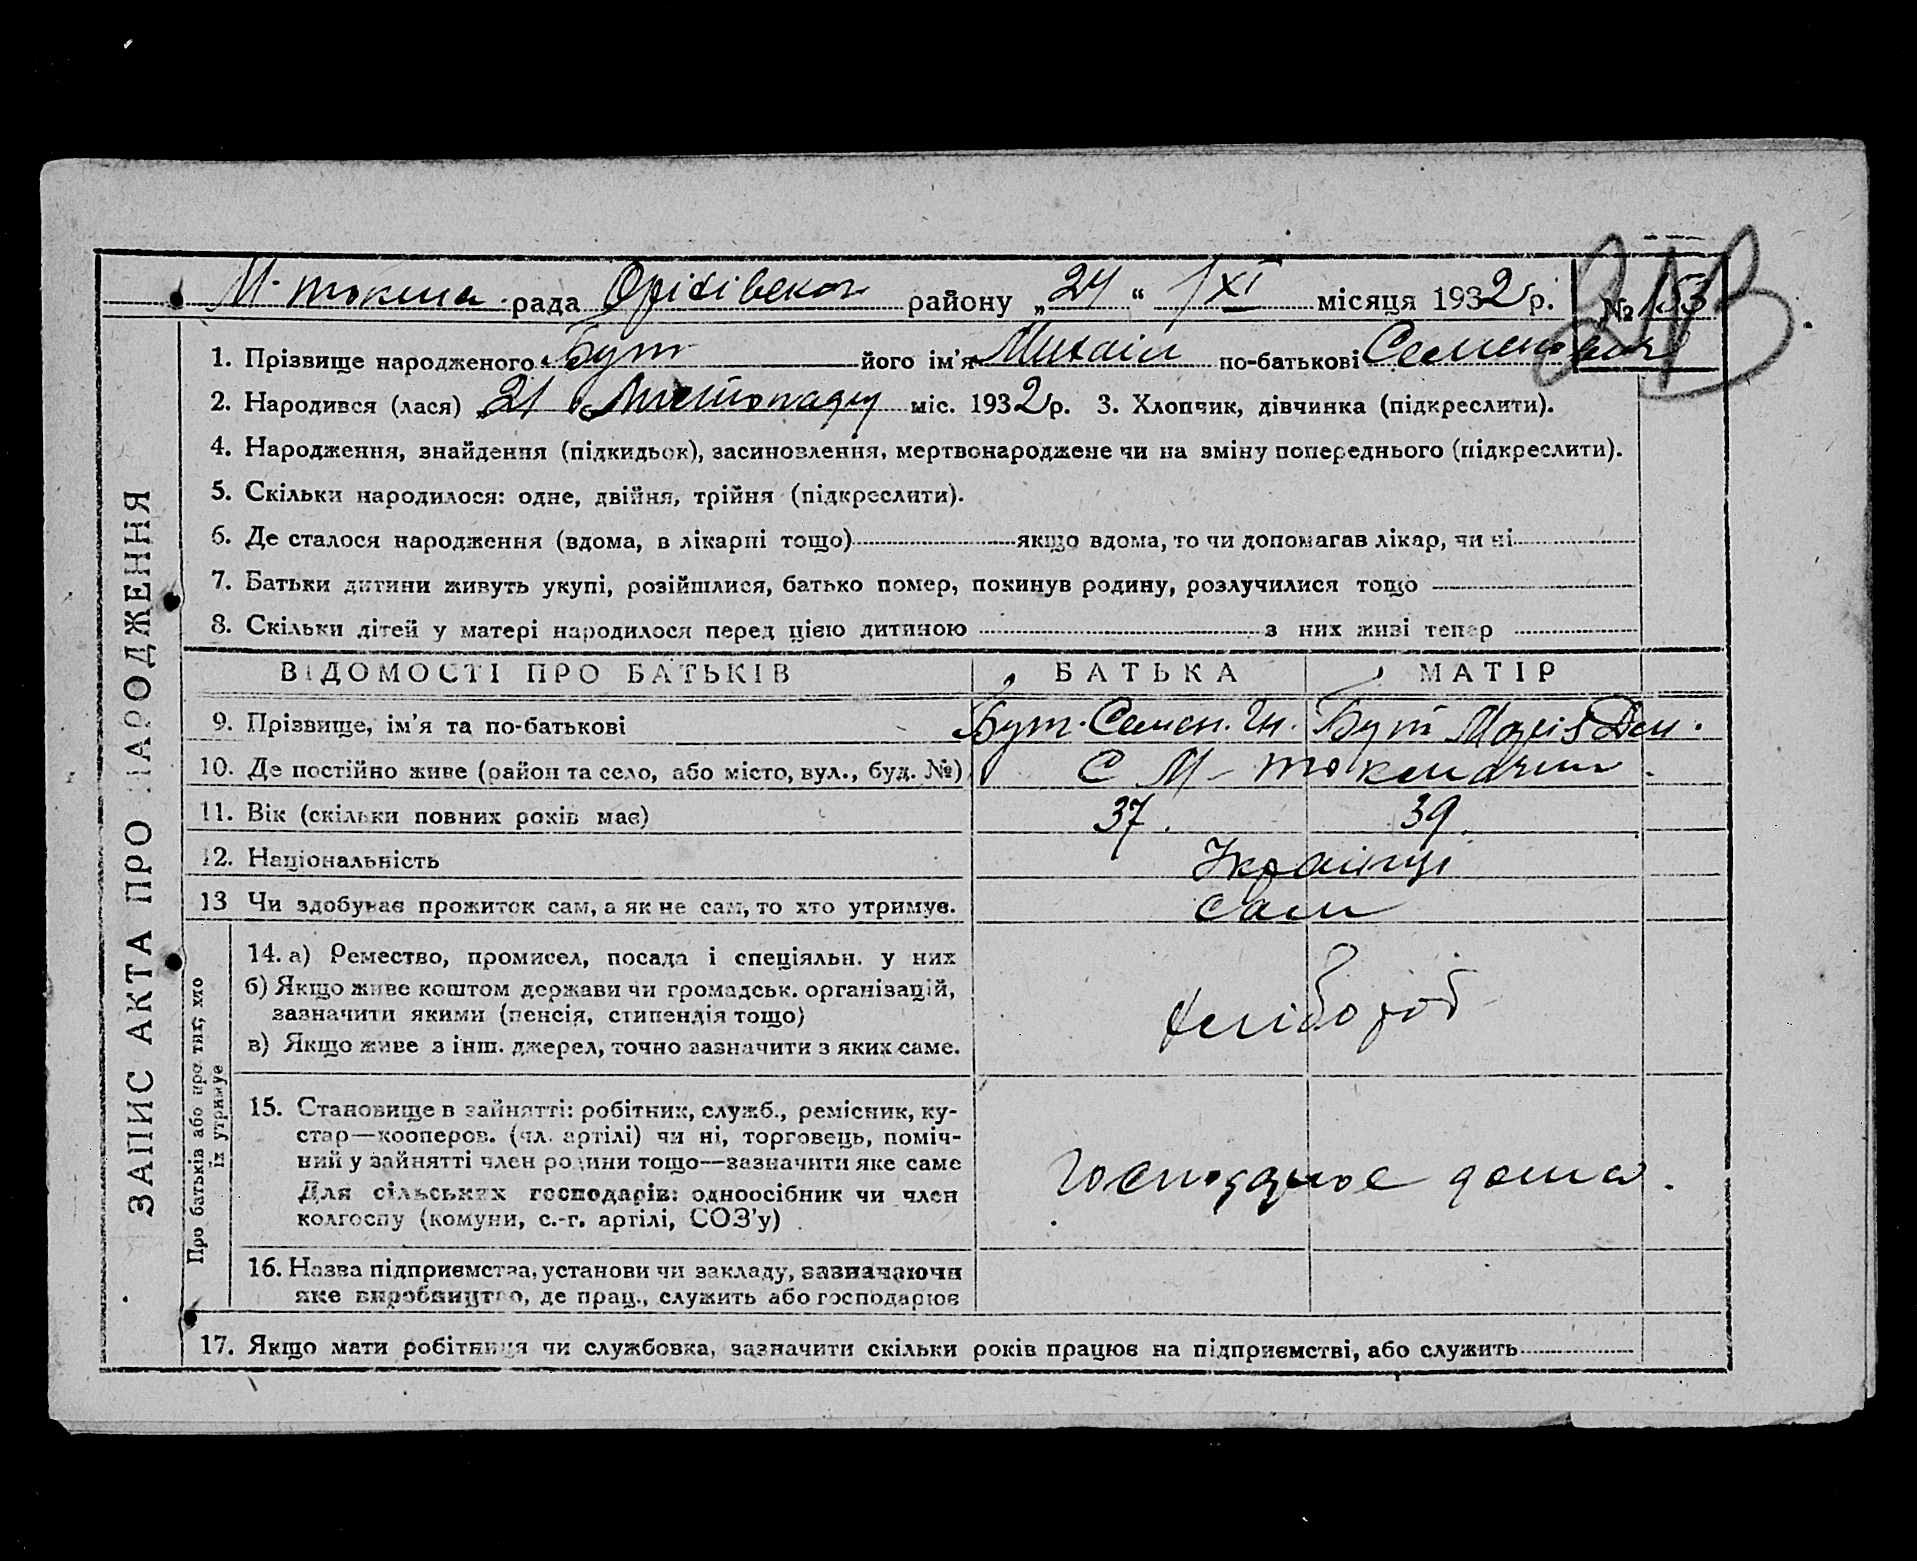 М-токма рада Оріхівського району „24“ /XI місяця 1932 р. № 153
1. Прізвище народженого Бут його ім’я Михаіл по-батькові Семенович
2. Народився (лася) 21 Листопаду міс. 1932 р. 3. Хлопчик, дівчинка (підкреслити).
4. Народження, знайдення (підкидьок), засиновлення, мертвонароджене чи на зміну попереднього (підкреслити).
5. Скільки народилося: одне, двійня, трійня (підкреслити).
6. Де сталося народження (вдома, в лікарні тощо) якщо вдома, то чи допомагав лікар, чи ні
7. Батьки дитини живуть укупі, розійшлися, батько помер, покинув родину, розлучилися тощо
8. Скільки дітей у матері народилося перед цією дитиною з них живі тепер
ЗАПИС АКТА ПРО НАРОДЖЕННЯ
ВІДОМОСТІ ПРО БАТЬКІВ БАТЬКА МАТІР
9. Прізвище, ім’я та по-батькові Бут Семен. Бут Марія Дем.
10. Де постійно живе (район та село, або місто, вул., буд. №) С М-
11. Вік (скільки повних років має) 37. 39.
12. Національність Українці
13 Чи здобуває прожиток сам, а як не сам, то хто утримує. сам
Про батьків або про тих, хто
їх утримує
14. а) Ремество, промисел, посада і спеціяльн. у них
б) Якщо живе коштом держави чи громадськ. організацій,
зазначити якими (пенсія, стипендія тощо)
хлібороб
в) Якщо живе з інш. джерел, точно зазначити з яких саме.
15. Становище в зайнятті: робітник, служб., ремісник, ку-
стар—кооперов. (чл. артілі) чи ні, торговець, поміч-
ний у зайнятті член родини тощо—зазначити яке саме
Для сільських господарів: одноосібник чи член
колгоспу (комуни, с.-г. артілі, СОЗ’у)
дома.
16. Назва підприємства, установи чи закладу, зазначаючи
яке виробництво, де прац., служить або господарює
17. Якщо мати робітниця чи службовка, зазначити скільки років працює на підприємстві, або служить